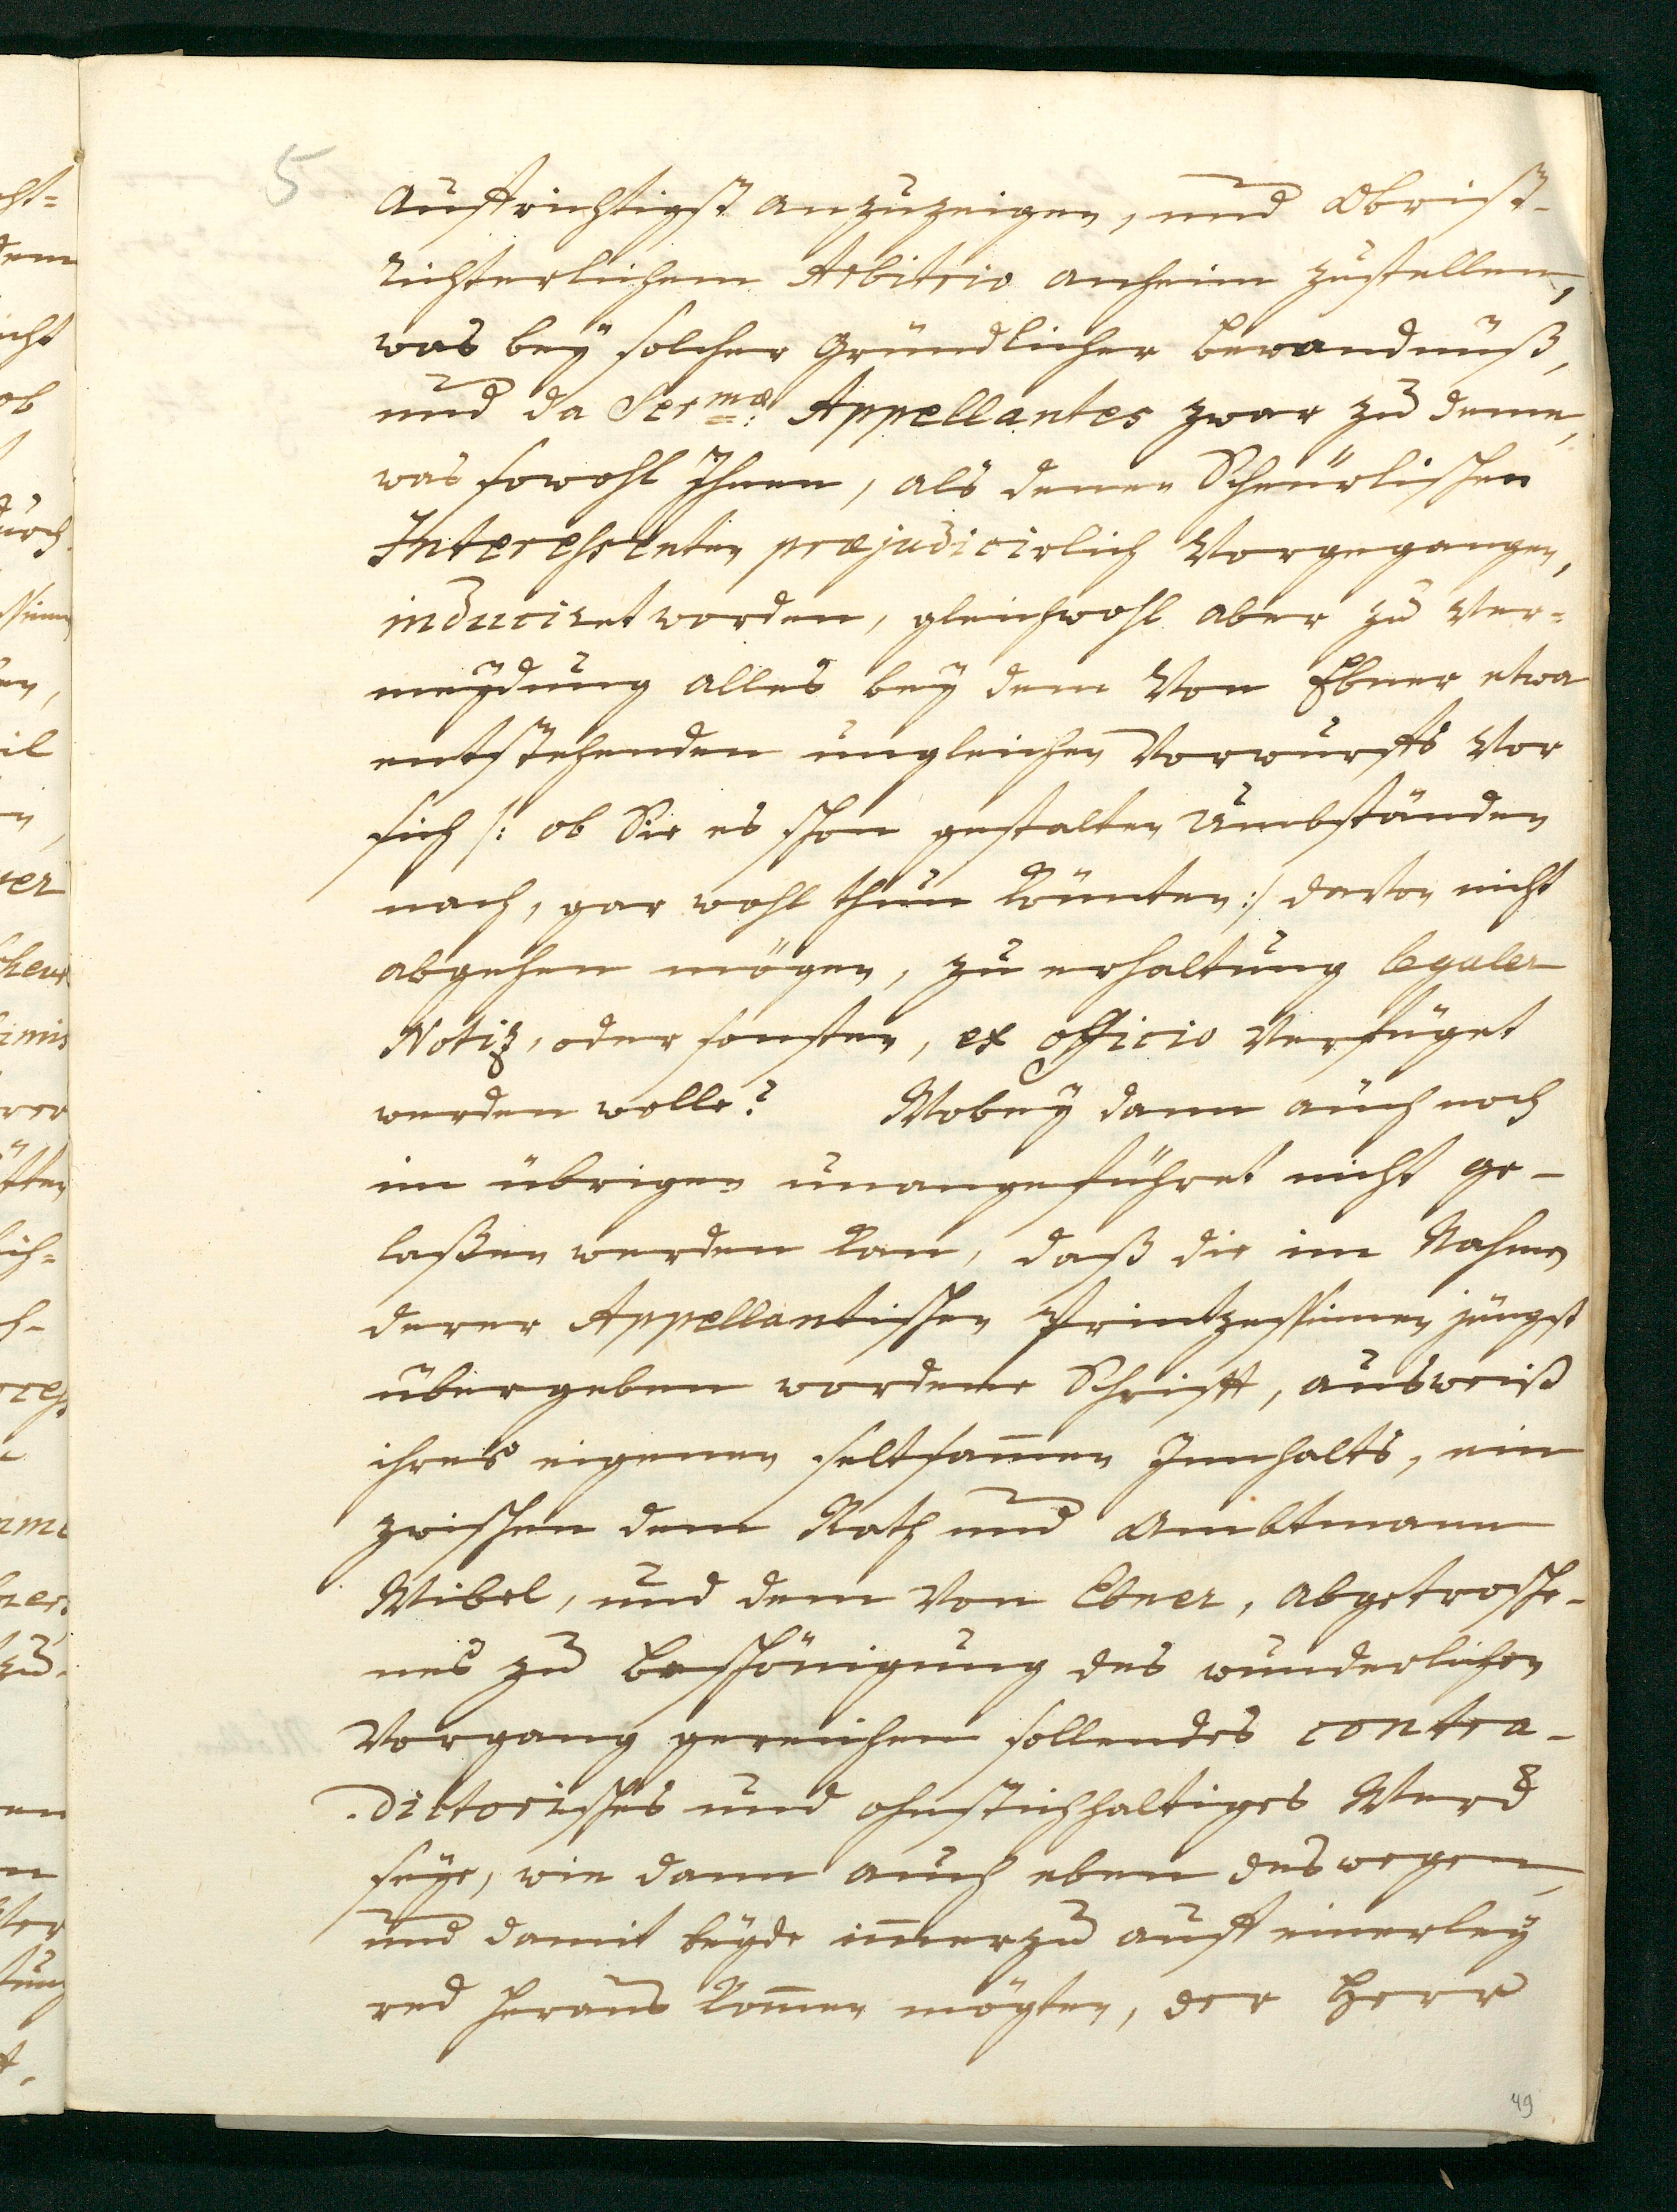 5
Auffrichtigst anzuzeigen, und Obrist-
Richterlichem Arbitrio anheim zustellen,
was bey solcher Gründlicher bewandnuß,
und da Ser.mæ: Appellantes zwar zu deme,
was sowohl Ihnen, als denen Scheürlischen
Interessenten præjudicirlich Vorgegangen,
induciret worden, gleichwohl aber zu Ver=
meÿdung alles beÿ dem Von Ebner etwa
entstehenden ungleichen Vorwurffs Vor
sich /: ob Sie es schon gestalten Umbständen
nach, gar wohl thun könnten :/ darvon nicht
abgehen mögen, zu erhaltung legaler
Notiz, oder sonsten, ex officio Verfüget
werden wolle? Wobeÿ dann auch noch
im übrigen unangeführet nicht ge-
laßen werden kan, daß die im Nahmen
derer Appellantischen Printzessinnen jüngst
übergeben wordene Schrifft, ausweiß
ihres eigenen seltsam̅en Innhalts, ein
zwischen dem Rath und Ambtmann
Wibel, und dem Von Ebner, abgetrosche-
nes zu beschönigung des wunderlichen
Vorgang gereichen sollendes contra-
dictorisches und ohnstichhaltiges Werck
seÿe, wie dann auch eben deswegen,
und damit beÿde im̅erzu auff einerleÿ
red heraus kom̅en mögten, der Herr
49